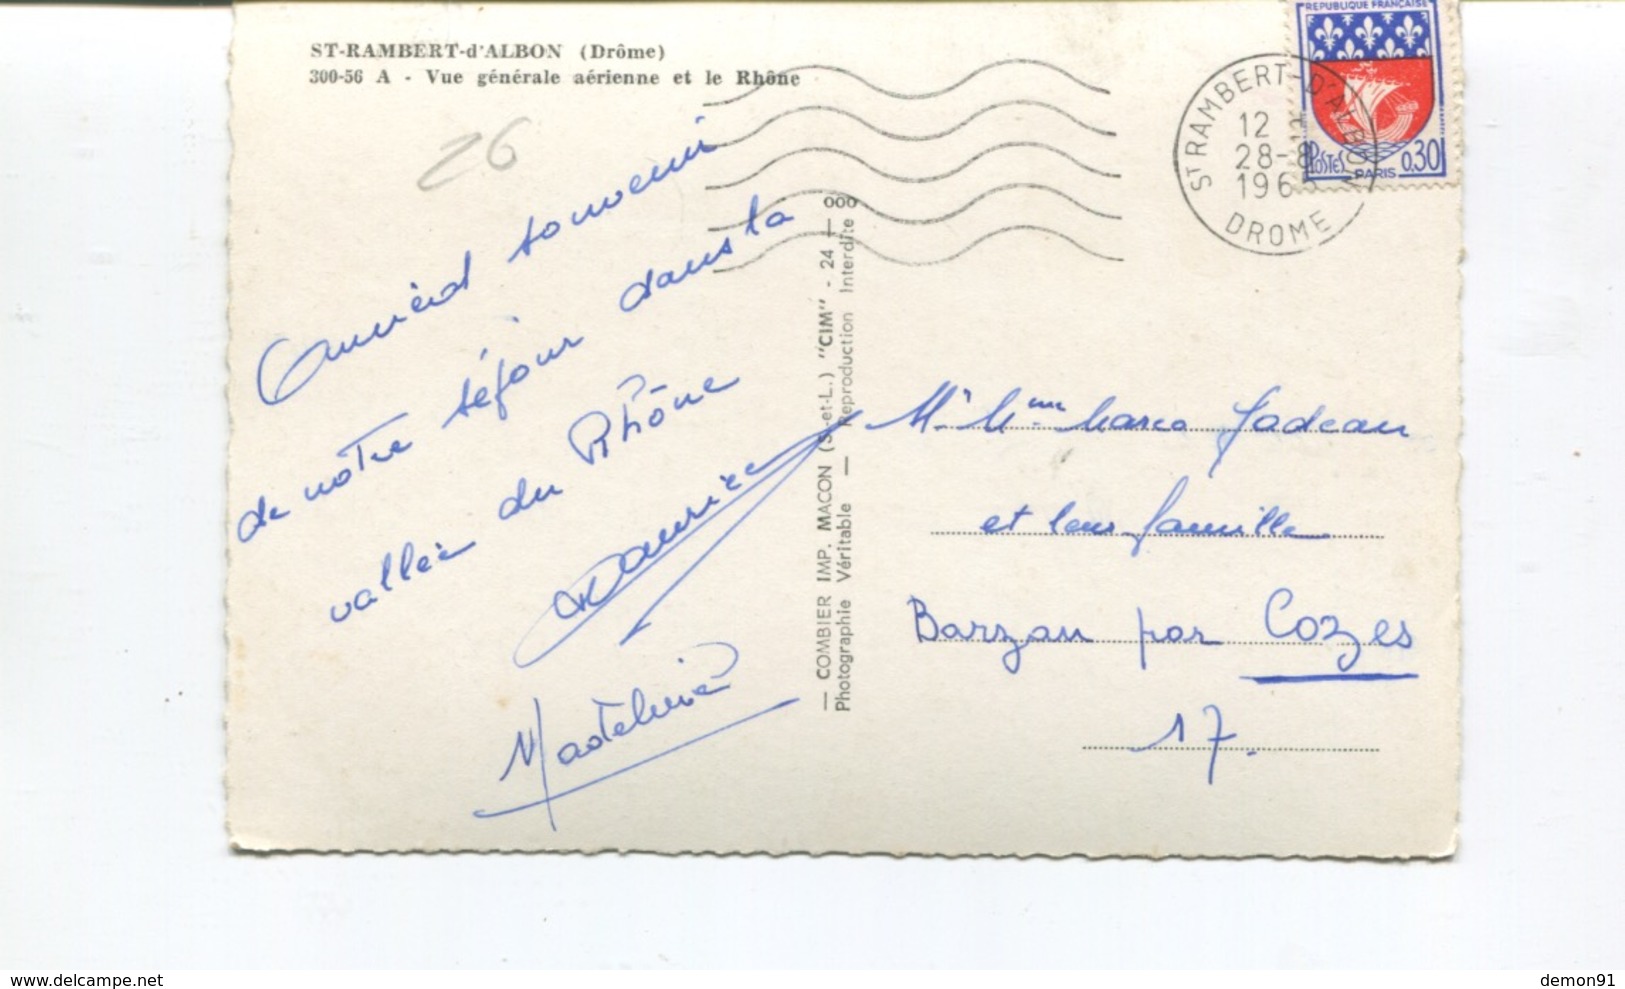 ST-RAMBERT-d'ALBON (Drôme)
300-56 A - Vue générale aérienne et le Rhône
26
Amical souvenir
de nôtre séjour dans la
vallée du Rhône
Maurice
Madeleine
— COMBIER IMP. MACON (S.-et-L.) "CIM" - 24 — 000
Photographie Véritable — Reproduction Interdite
REPUBLIQUE FRANÇAISE
POSTES
0,30
PARIS
ST RAMBERT-D'ALBON
12 H
28-8
196
DROME
Mr Mme Marco Gadeau
et leur famille
Barzan par Cozes
17.
delcampe.net
demon91